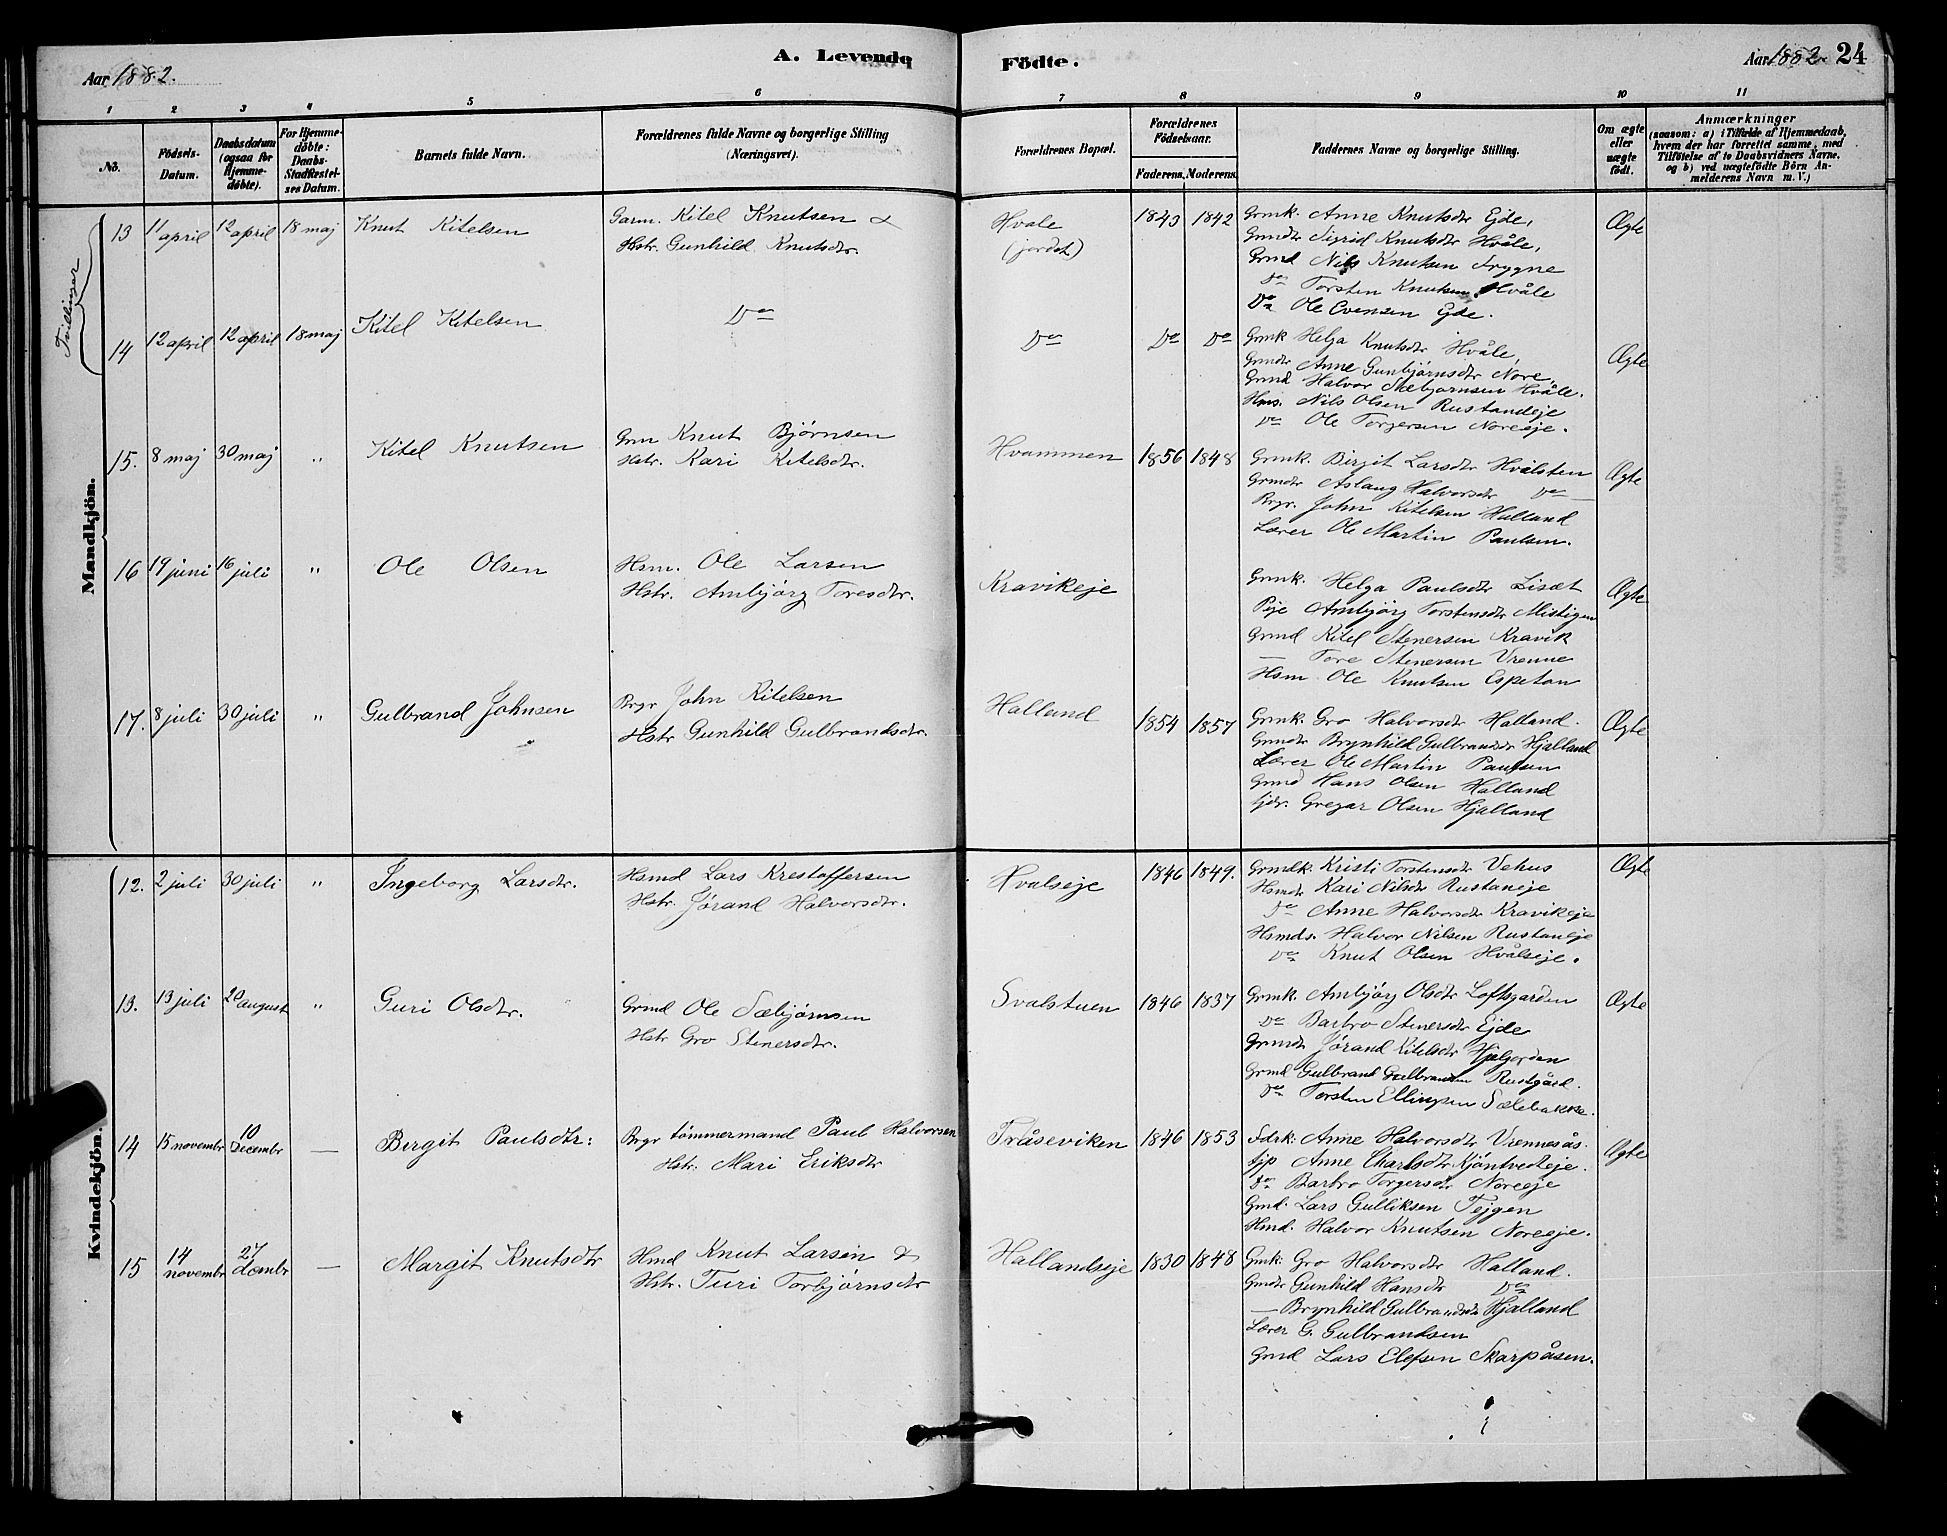 Aar 1882.
A. Levende Födte.
Aar 1882 24
1 2 3 4 5 6 7 8 9 10 11
No.
Födsels-Datum.
Daabsdatum (ogsaa for Hjemme-døbte).
For Hjemme-døbte: Daabs-Stadfæstel-ses Datum.
Barnets fulde Navn.
Forældrenes fulde Navne og borgerlige Stilling (Næringsvei).
Forældrenes Bopæl.
Forældrenes Födselsaar.
Faderens. Moderens.
Faddernes Navne og borgerlige Stilling.
Om ægte eller uægte født.
Anmærkninger
(saasom: a) i Tilfælde af Hjemmedaab,
hvem der har forrettet samme, med
Tilföielse af to Daabsvidners Navne,
og b) ved uægtefödte Börn An-
melderens Navn m. V.)
Mandkjön.
Tvillinger
13 11 april 12 april 18 maj Knut Kitelsen
Garm. Kitel Knutsen &
Hstr. Gunhild Knutsdtr.
Hvale
(jordet)
1843 1842
Grmk. Anne Knutsdtr Ejde,
Grmdtr Sigrid Knutsdtr Hvåle,
Grmd Nils Knutsen Frygne
Do Torsten Knutsen Hvåle
Do Ole Evensen Ejde.
Ægte
14 12 april 12 april 18 maj Kitel Kitelsen
Do
Do
Do Do
Grmk Helga Knutsdtr Hvåle,
Grmdtr Anne Gunbjørnsdtr Nore,
Grmd Halvor Sæbjørnsen Hvåle.
Hms. Nils Olsen Rustandeje
Do Ole Torgersen Noreeje.
Ægte
15. 8 maj 30 maj " Kitel Knutsen
Grm Knut Bjørnsen
Hstr. Kari Kitelsdtr.
Hvammen
1856 1848
Grmk. Birgit Larsdtr Hvålsten
Grmdtr Aslaug Halvorsdtr Do
Brgr. John Kitelsen Halland
Lærer Ole Martin Paulsen.
Ægte
16 19 juni 16 juli " Ole Olsen
Hsm. Ole Larsen
Hstr. Ambjörg Toresdtr.
Kravikeje
Grmk. Helga Paulsdtr Lisæt
Pige Ambjörg Torstensdtr Mistigen
Grmd Kitel Stenersen Kravik
— Tore Stenersen Vrenne
Hsm Ole Knutsen Espeton
Ægte
17. 8 juli 30 juli " Gulbrand Johnsen
Brgr John Kitelsen
Hstr Gunhild Gulbrandsdtr.
Halland
1854 1857
Grmk. Gro Halvorsdtr Halland.
Grmdtr Brynhild Gulbrandsdtr Hjalland
Lærer Ole Martin Paulsen
Grmd Hans Olsen Halland
Gregar Olsen Hjalland
Ægte
Kvindekjön.
12. 2 juli 30 juli " Ingeborg Larsdtr.
Hsmd Lars Krestoffersen
Hstr. Jørand Halvorsdtr.
Hvalseje
1846 1849.
Grmdk. Kristi Torstensdtr Vehus
Hsmdtr Kari Nilsdtr Rustaneje
Do Anne Halvorsdtr Kravikeje
Hsmds. Halvor Nilsen Rustaneje
Do Knut Olsen Hvålseje.
Ægte
13. 13 juli 20 august " Guri Olsdtr.
Grmd Ole Sæbjørnsen
Hstr Gro Stenersdtr.
Svalstuen
1846 1837
Grmk. Ambjörg Olsdtr Loftsgarden
Do Barbro Stenersdtr Ejde
Grmdtr Jørand Kitelsdtr
Grmd Gulbrand Gulbrandsen Rustgård.
Do Torsten Ellingsen Sælebakke.
Ægte
14 15 novembr 10 Decembr — Birgit Paulsdtr:
Brgr tømmermand Paul Halvorsen
Hstr. Mari Eriksdtr
Fråseviken
1846 1853
Fdrk. Anne Halvorsdtr Vrennesås.
tjp Anne Charlsdtr Kjøntvedteje.
Do Barbro Torgersdtr Noreeje
Gmd. Lars Gulliksen Tejgen
Hmd. Halvor Knutsen Noreeje.
Ægte
15 14 novembr 27 decembr — Margit Knutsdtr
Hmd Knut Larsen &
Hstr. Turi Torbjørnsdtr
Hallandseje
1830 1848
Gmk. Gro Halvorsdtr Halland.
Gmdtr Gunhild Hansdtr Do
— Brynhild Gulbrandsdtr Hjalland
Lærer G. Gulbrandsen
Gmd Lars Elefsen Skarpåsen.